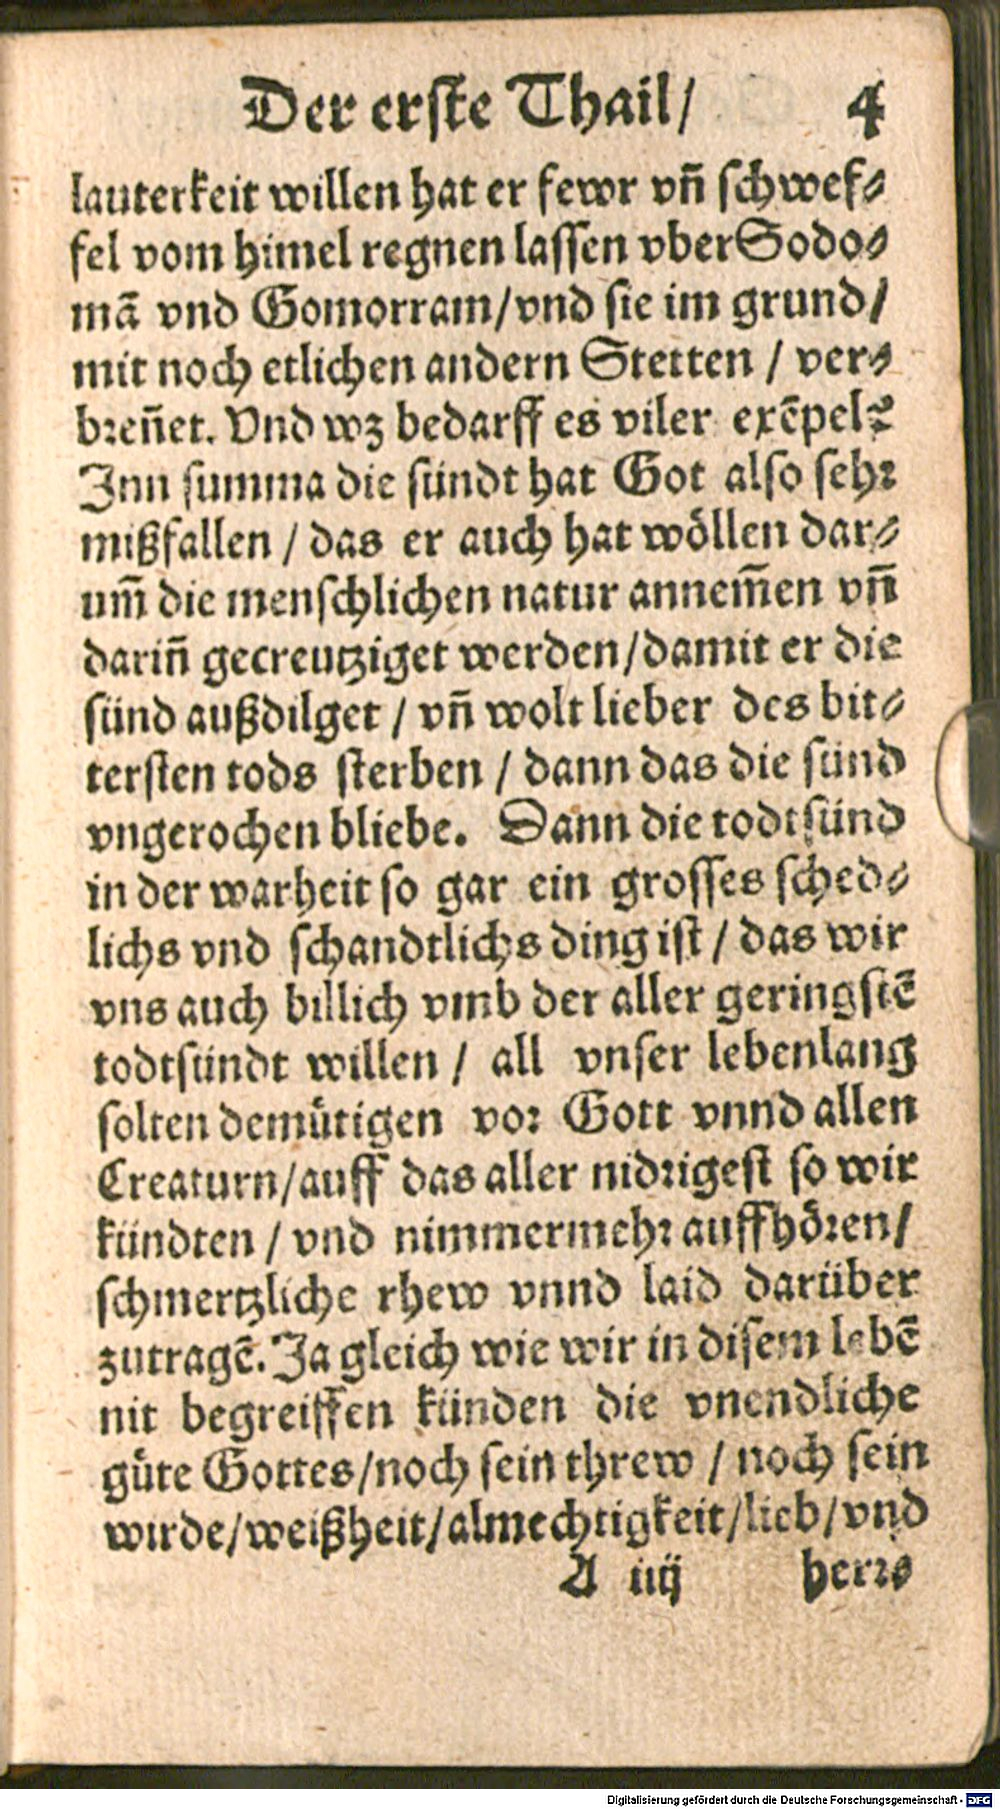 Der erste Thail/ 4
lauterkeit willen hat er fewr vñ schwef-
fel vom himel regnen lassen vber Sodo-
mã vnd Gomorram/vnd sie im grund/
mit noch etlichen andern Stetten / ver-
breñet. Vnd wz bedarff es viler exẽpel?
Inn summa die sündt hat Got also sehr
mißfallen / das er auch hat wöllen dar-
um̃ die menschlichen natur annem̃en vñ
dariñ gecreutziget werden/damit er die
sünd außdilget / vñ wolt lieber des bit-
tersten tods sterben / dann das die sünd
vngerochen bliebe. Dann die todtsünd
in der warheit so gar ein grosses sched-
lichs vnd schandtlichs ding ist / das wir
vns auch billich vmb der aller geringstẽ
todtsündt willen / all vnser lebenlang
solten demütigen vor Gott vnnd allen
Creaturn/auff das aller nidrigest so wir
kündten / vnd nimmermehr auffhören/
schmertzliche rhew vnnd laid darüber
zutragẽ. Ja gleich wie wir in disem lebẽ
nit begreiffen künden die vnendliche
güte Gottes/noch sein threw / noch sein
wirde/weißheit/almechtigkeit/lieb/vnd
A iiij herr-
Digitalisierung gefördert durch die Deutsche Forschungsgemeinschaft - DFG